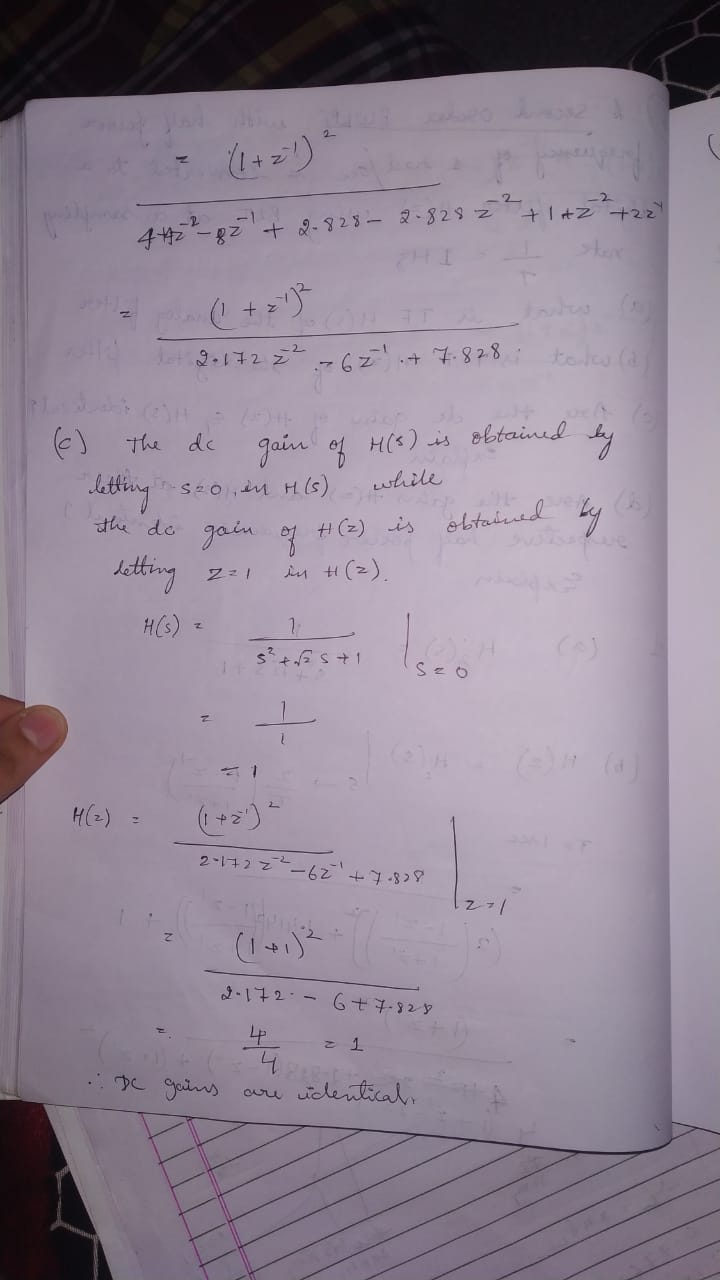 = (1 + z⁻¹)²
4+4z⁻² - 8z⁻¹ + 2.828 - 2.828 z⁻² + 1 + z⁻² + 2z⁻¹
= (1 + z⁻¹)²
2.172 z⁻² - 6z⁻¹ + 7.828
(c) The dc gain of H(s) is obtained by
letting s=0, in H(s) while
the dc gain of H(z) is obtained by
letting z=1 in H(z).
H(s) = 1
s² + √2 s + 1 | s=0
= 1
1
= 1
H(z) = (1+z⁻¹)²
2.172 z⁻² - 6z⁻¹ + 7.828 | z=1
= (1+1)²
2.172 - 6 + 7.828
= 4/4 = 1
∴ DC gains are identical.